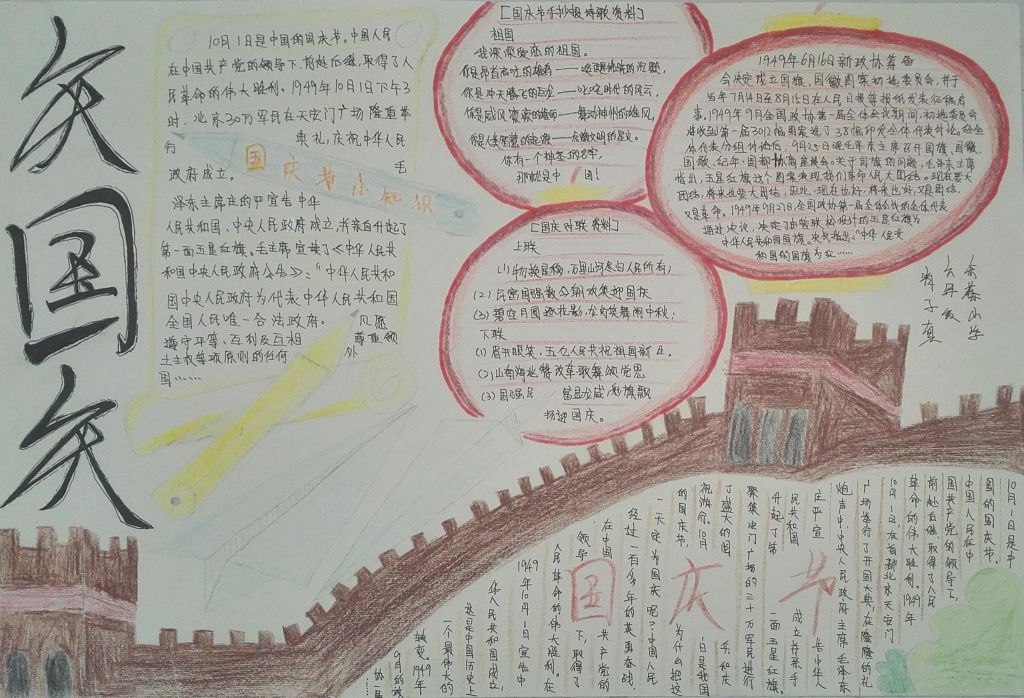 矢
国
矢
10月1日是中国的国庆节。中国人民
在中国共产党的领导下,前赴后继,取得了人
民革命的伟大胜利。1949年10月1日下午3
时,北京30万军民在天安门广场隆重举
行 典礼,庆祝中华人民
政府成立。 毛
泽东主席庄严宣告中华
人民共和国、中央人民政府成立,并亲自升起了
第一面五星红旗。毛主席宣读了《中华人民共
和国中央人民政府公告》:“中华人民共和
国中央人民政府为代表中华人民共和国
全国人民唯一合法政府。 凡愿
遵守平等、互利及互相 尊重领
土主权等项原则的任何 外
国……
国庆节小知识
[国庆节手抄报诗歌资料]
祖国
我深深爱恋的祖国。
你是昂首高吭的雄鸡——唤醒拂晓的沉默,
你是冲天腾飞的巨龙——叱咤时代的风云,
你是威风凛凛的雄狮——舞动神州的雄风,
你是人类智慧的起源——点燃文明的星火。
你有一个神圣的名字,
那就是中 国!
[国庆对联资料]
上联
(1)物换星移,万里山河冬归人民所有;
(2)民富国强教今朝欢聚迎国庆
(3)碧空月圆逐花影,龙灯笑舞闹中秋;
下联
(1)眉开眼笑,五亿人民共祝祖国新生。
(2)山南海北赞改革歌舞颂党恩
(3)国强民 富显龙威,彩旗飘
扬迎国庆。
1949年6月16日新政协筹备
会决定成立国旗、国徽图案初选委员会,并于
当年7月14日至8月15日在人民日报等报纸发表征稿启
事。1949年9月全国政协第一届全体会议期间,初选委员会
将收到第一届3012幅图案选了38幅印发全体代表讨论。经全
体代表分组讨论后,9月25日晚毛泽东主席召开国旗、国徽、
国歌、纪年、国都协商座谈会。关于国旗的问题,毛泽东主席
指出,五星红旗这个图案表现我们革命人民大团结。现在要大
团结,将来也要大团结,因此,现在也好,将来也好,又是团结,
又是革命。1949年9月27日,全国政协第一届全体会议的全体代表
通过决议,决定了由曾联松设计的五星红旗为
中华人民共和国国旗。决议指出:“中华人民共
和国的国旗为五……
国庆节
10月1日是中
国的国庆节。
中国人民在中
国共产党的领导下,
前赴后继取得了人民
革命的伟大胜利。1949年
10月1日在首都北京天安门
广场举行了开国大典,在隆隆的礼
炮声中,中央人民政府主席毛泽东
庄严宣 告中华人
民共和国 成立并亲手
升起了第 一面五星红旗。
聚集天安门广场的三十万军民进行
了盛大的阅 兵和庆
祝游行。10月 1日是我国
的国庆节, 为什么把这
一天定为国庆呢?中国人民
经过一百多年的英勇奋战,
在中国 共产党的
领导 下,取得了
人民革命的伟大胜利。在
1949年10月1日宣告中
华人民共和国成立,
这是中国历史上
一个最伟大的
转变。1949年